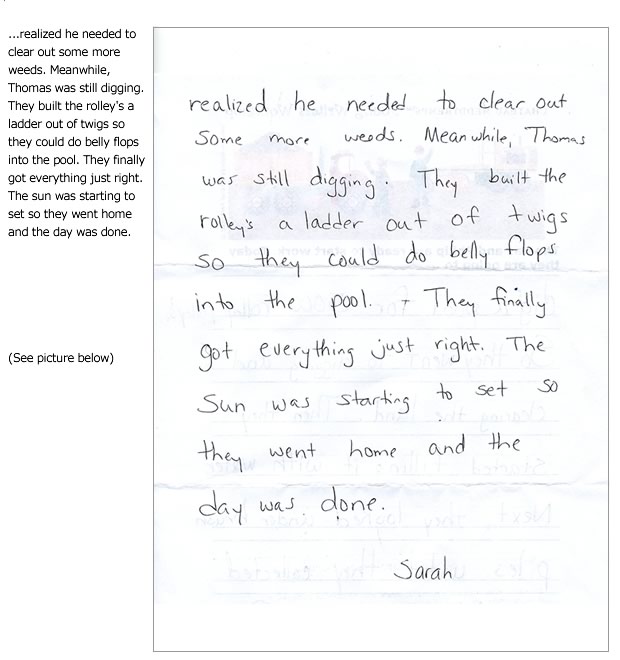 ...realized he needed to
clear out some more
weeds. Meanwhile,
Thomas was still digging.
They built the rolley's a
ladder out of twigs so
they could do belly flops
into the pool. They finally
got everything just right.
The sun was starting to
set so they went home
and the day was done.
(See picture below)
realized he needed to clear out
some more weeds. Meanwhile, Thomas
was still digging. They built the
rolley's a ladder out of twigs
so they could do belly flops
into the pool. They finally
got everything just right. The
sun was starting to set so
they went home and the
day was done.
Sarah